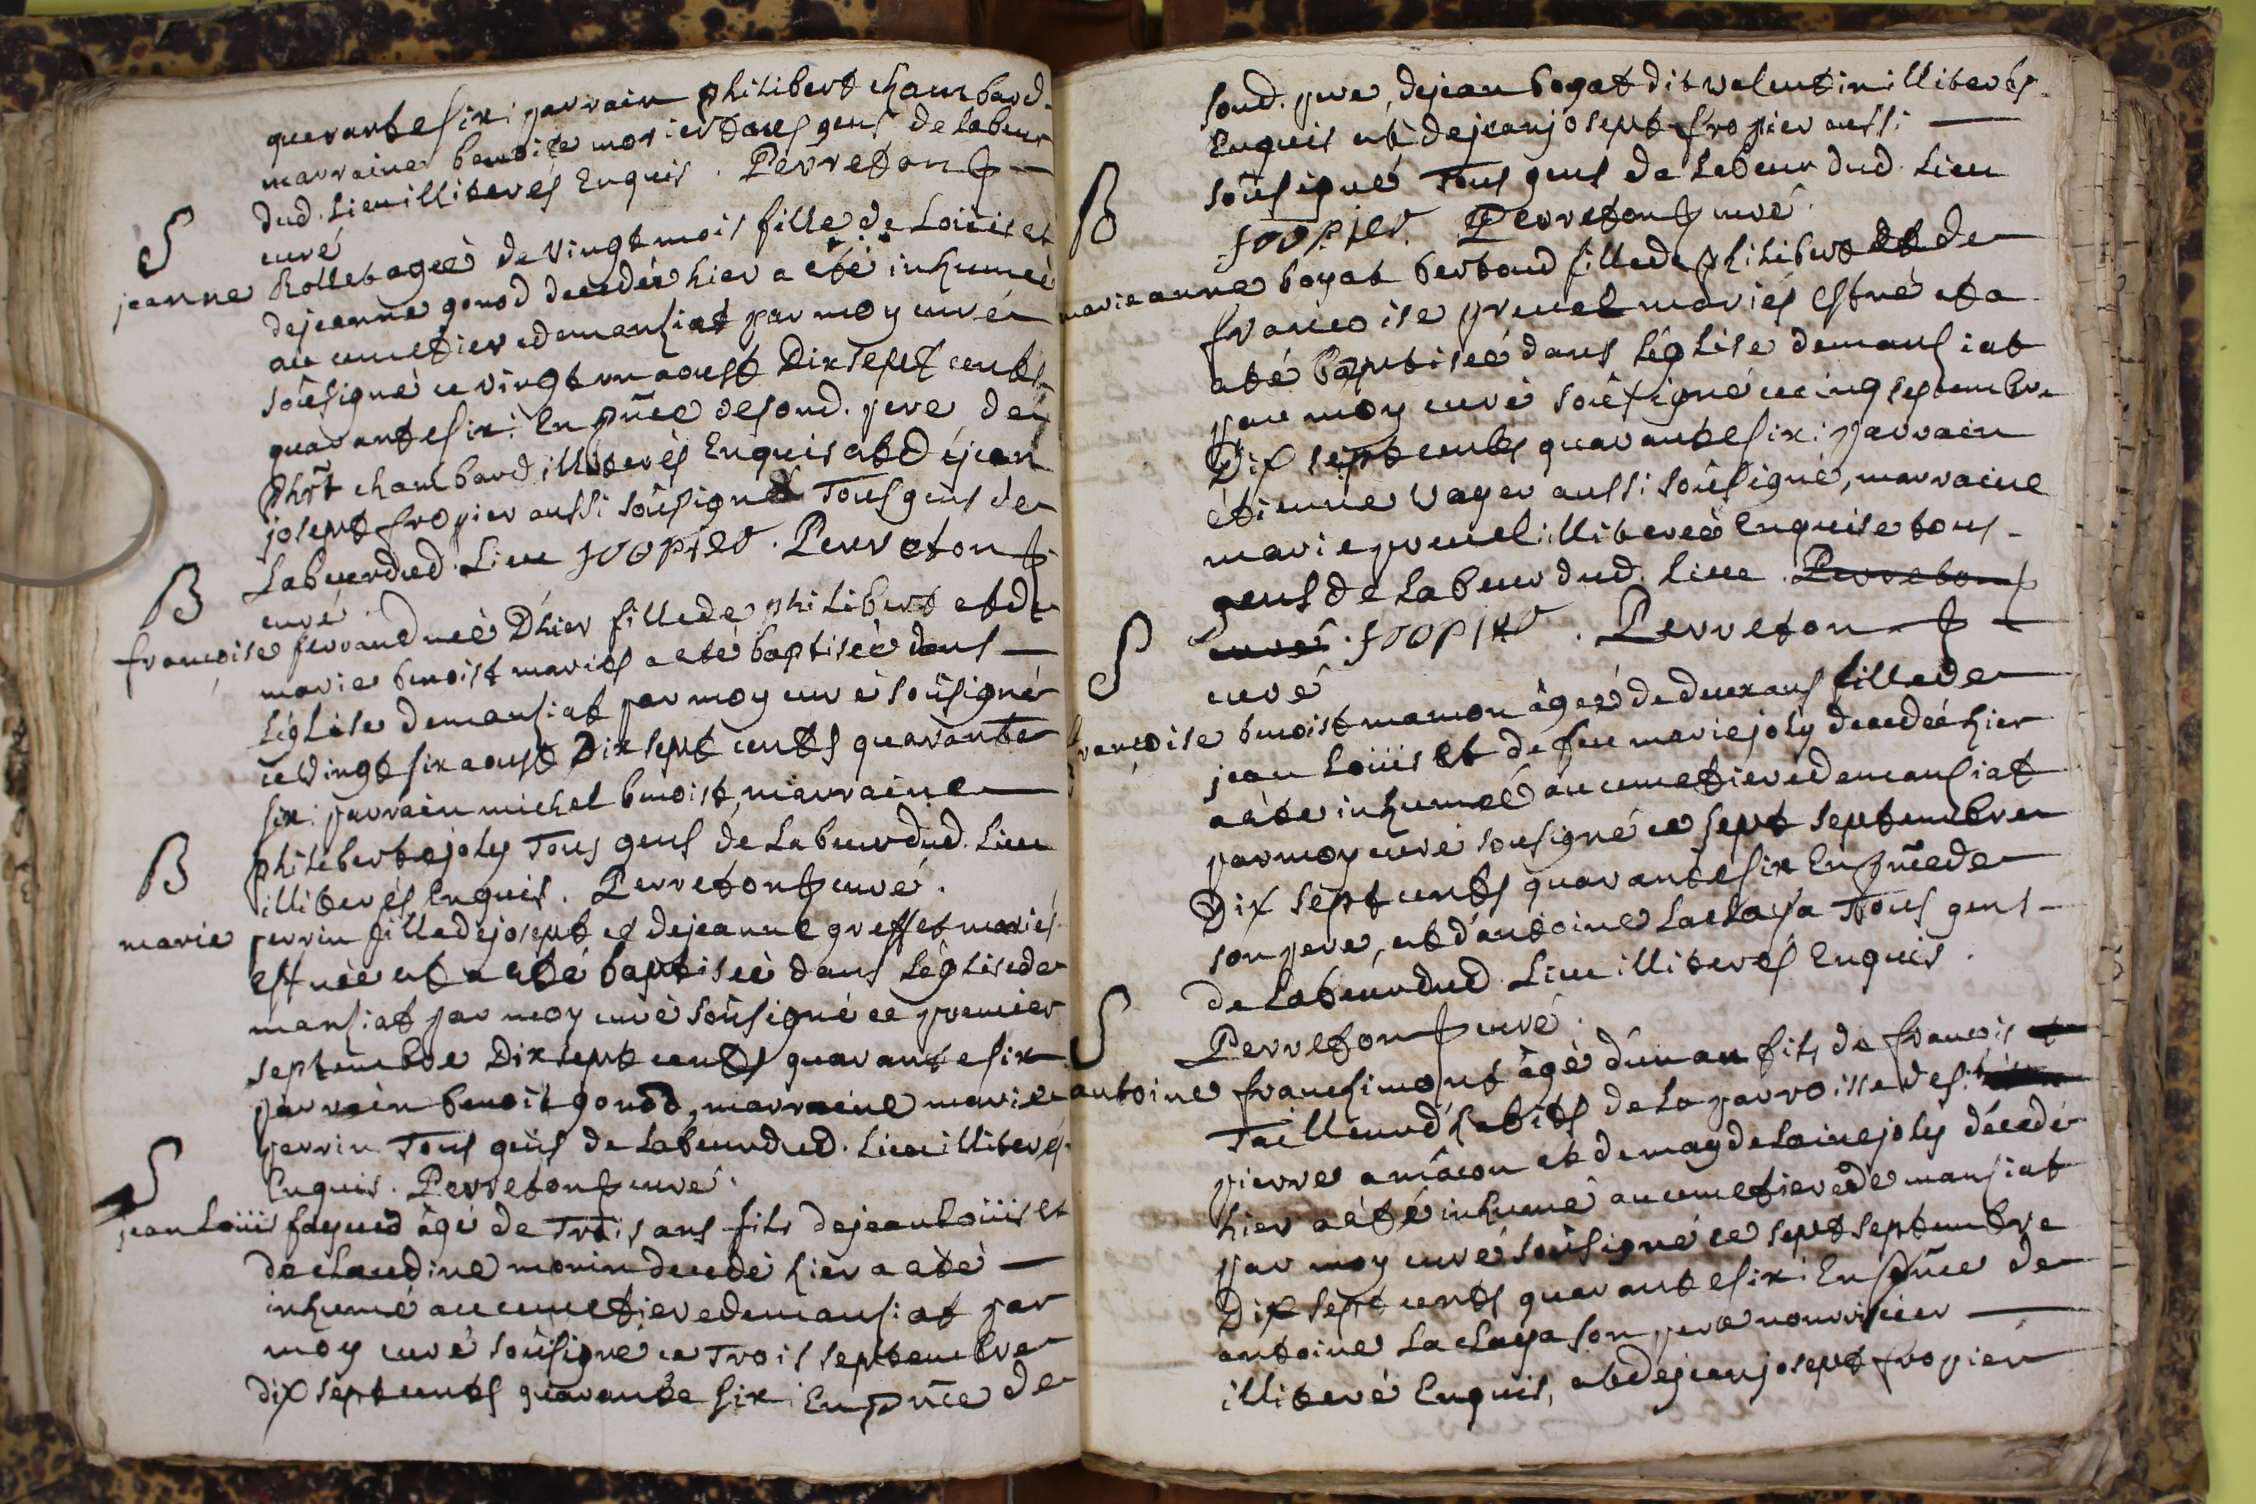 quarante six: parrain philibert chambard
marraine benoite morier tous gens de labeur
dud. lieu illiterés enquis. Perreton p
curé
S
jeanne Rollet agée de vingt mois fille de Loüis et
de jeanne gonod decedée hier a eté inhumeé
au cimetiere de mansiat par moy curé
soûsigné ce vingt un aoust Dix sept cents
quarante six: En pnce desond. pere de
phrt chambard illiterés Enquis et de jean
josept fropier aussi soûsigné Tous gens de
Labeur dud. Lieu fropier. Perreton p
curé
B
françoise ferrand neé D'hier fille de philibert et de
marie benoist mariés a eté baptisée dans
Léglise de mansiat par moy curé soûsigné
ce vingt six aoust Dix sept cents quarante
six: parrain michel benoist, marraine
philiberte joly Tous gens de Labeur dud. Lieu
illiterés Enquis. Perreton p curé.
B
marie perrin fille de josept et de jeanne greffet mariés
est neé et a eté baptiseé dans Léglise de
mansiat par moy curé soûsigné ce premier
septembre Dix sept cents quarante six
parrain benoit gonod, marraine marie
perrin Tous gens de Labeur dud. Lieu illiterés
Enquis. Perreton p curé.
S
jean Loüis fayed âgé de Trois ans fils de jean Loüis et
de claudine monin decedé hier a eté
inhumé au cimetiere de mansiat par
moy curé soûsigné ce Trois septembre
dix sept cents quarante six: En pnce de
sond. pere, de jean bogat dit valentin illiterés
Enquis et de jean josept fropier aussi
soûsigné Tous gens de Labeur dud. Lieu
fropier. Perreton p curé.
B
marie anne boyat bertoud fille de philibert et de
francoise pruel mariés est né et a
eté baptiseé dans Léglise de mansiat
par moy curé soûsigné ce cinq septembre
Dix sept cents quarante six: parrain
étienne vayer aussi soûsigné, marraine
marie pruel illitereé Enquise tous
gens de Labeur dud. lieu. Perreton p
curé. fropier. Perreton p
curé
S
françoise benoist mamon âgeé de deux ans fille de
jean Loüis et de feu marie joly decedeé hier
a eté inhumeé au cimetiere de mansiat
par moy curé sousigné ce sept septembre
Dix sept cents quarante six En pnce de
son pere, et d'antoine Laclaya Tous gens
de Labeur dud. Lieu illiterés Enquis.
Perreton p curé.
S
antoine francsimont âgé d'un an fils de francois
Tailleur d'habits de La parroisse de st
pierre a mâcon et de magdelaine joly décedé
hier a eté inhumé au cimetiere de mansiat
par moy curé soûsigné ce sept septembre
Dix sept cents quarante six: En pnce de
antoine Laclaya son pere nourricier
illiteré Enquis, et de jean josept fropier